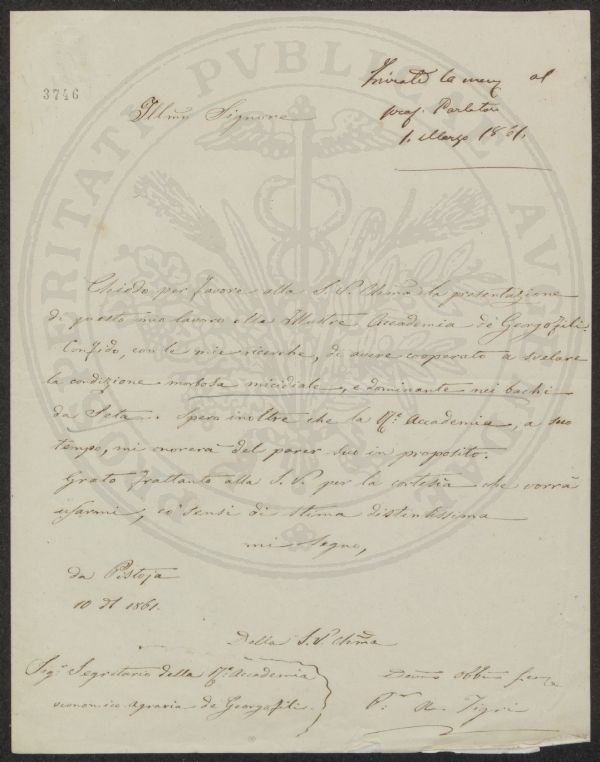 3746
al
prof. Parlatore
1. Marzo 1861.
Illmo Signore
PROSPERITATI PVBLICAE AVGENDAE
Chiedo per favore alla S. V. Illma la presentazione
di questo mio lavoro alla Illustre Accademia de' Georgofili.
Confido, con le mie ricerche, di avere cooperato a svelare
la condizione morbosa micidiale, e dominante nei bachi
da Seta. Spero inoltre che la R.a Accademia, a suo
tempo, mi onorerà del parer suo in proposito.
Grato frattanto alla S. V. per la cortesia che vorrà
usarmi, co' sensi di stima distintissima
mi segno,
da Pistoja
10 1861.
Della S. V. Illma
Sigr Segretario della R.a Accademia
economico-agraria de Georgofili.
obbmo
A. Tigri